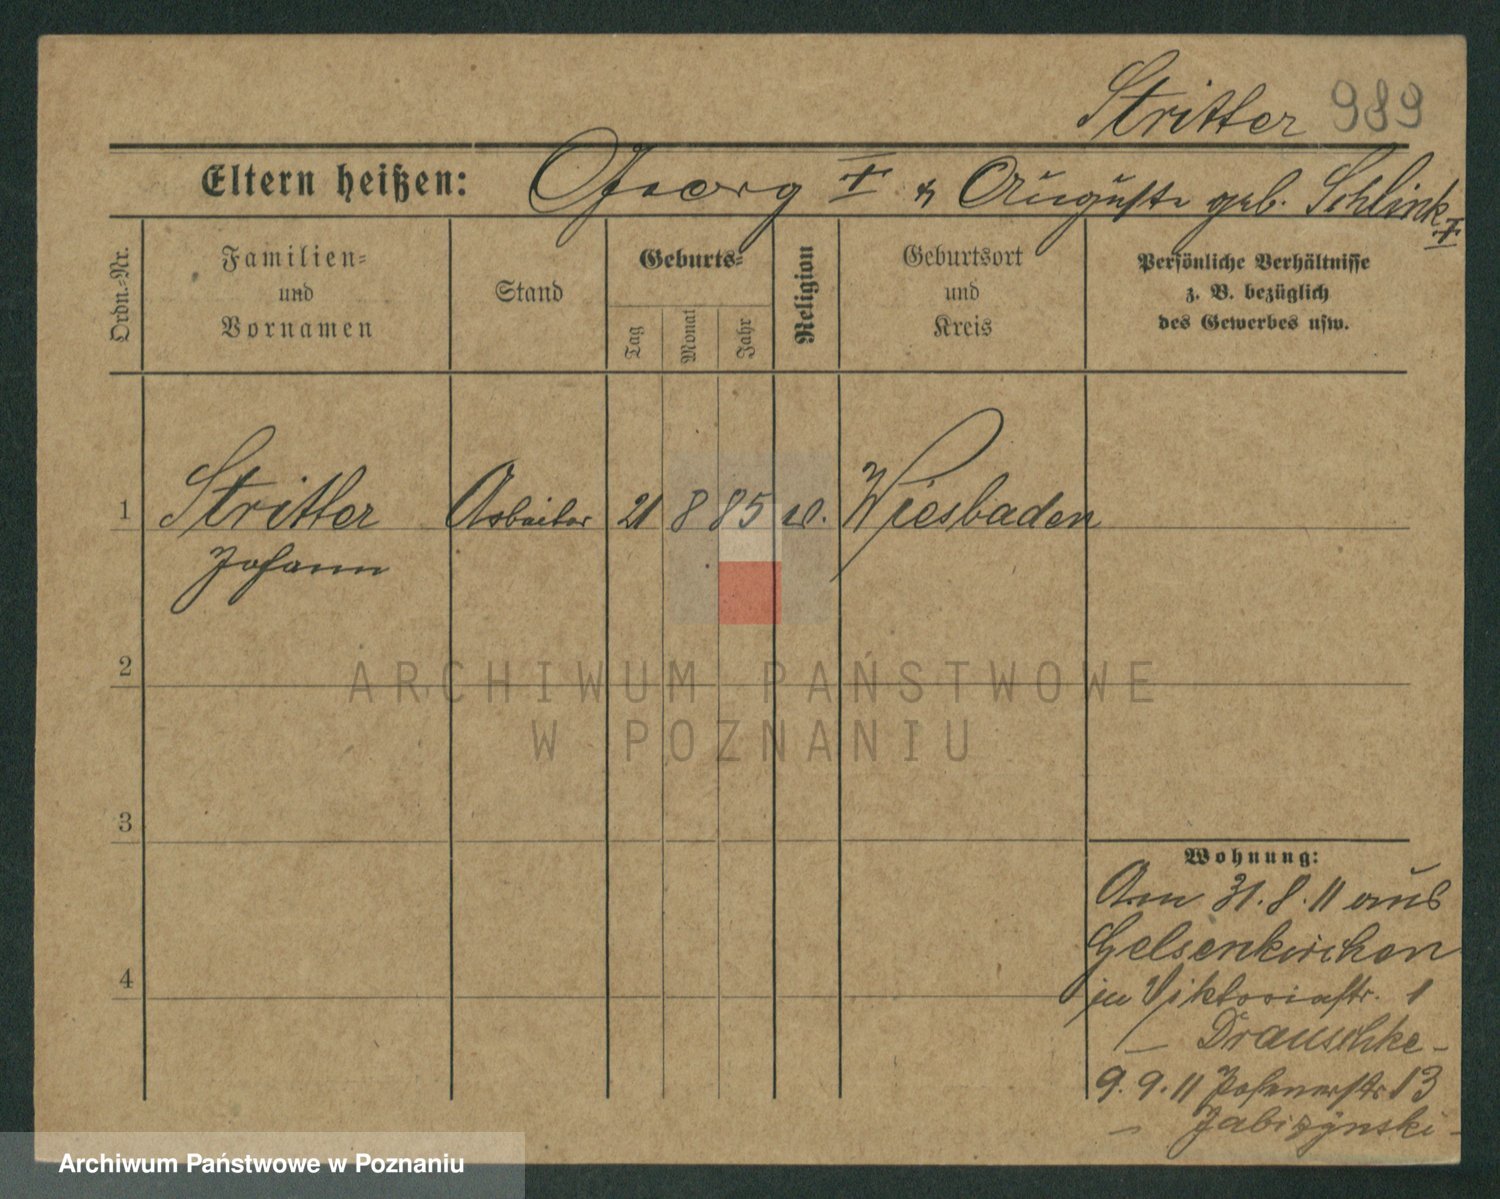 Stritter 989
Eltern heißen: Georg † & Auguste geb. Schlink †
Ordn.-Nr.
Familien=
und
Vornamen
Stand
Geburts=
Tag
Monat
Jahr
Religion
Geburtsort
und
Kreis
Persönliche Verhältnisse
z. B. bezüglich
des Gewerbes usw.
1 Stritter Arbeiter 21 8 85 Wiesbaden
Johann
2
ARCHIWUM PAŃSTWOWE
W POZNANIU
3
Wohnung:
Am 31.8.11 aus
Gelsenkirchen
4
in Viktoriastr. 1
– Drauschke –
9.9.11 Posenerstr. 13
–
Archiwum Państwowe w Poznaniu